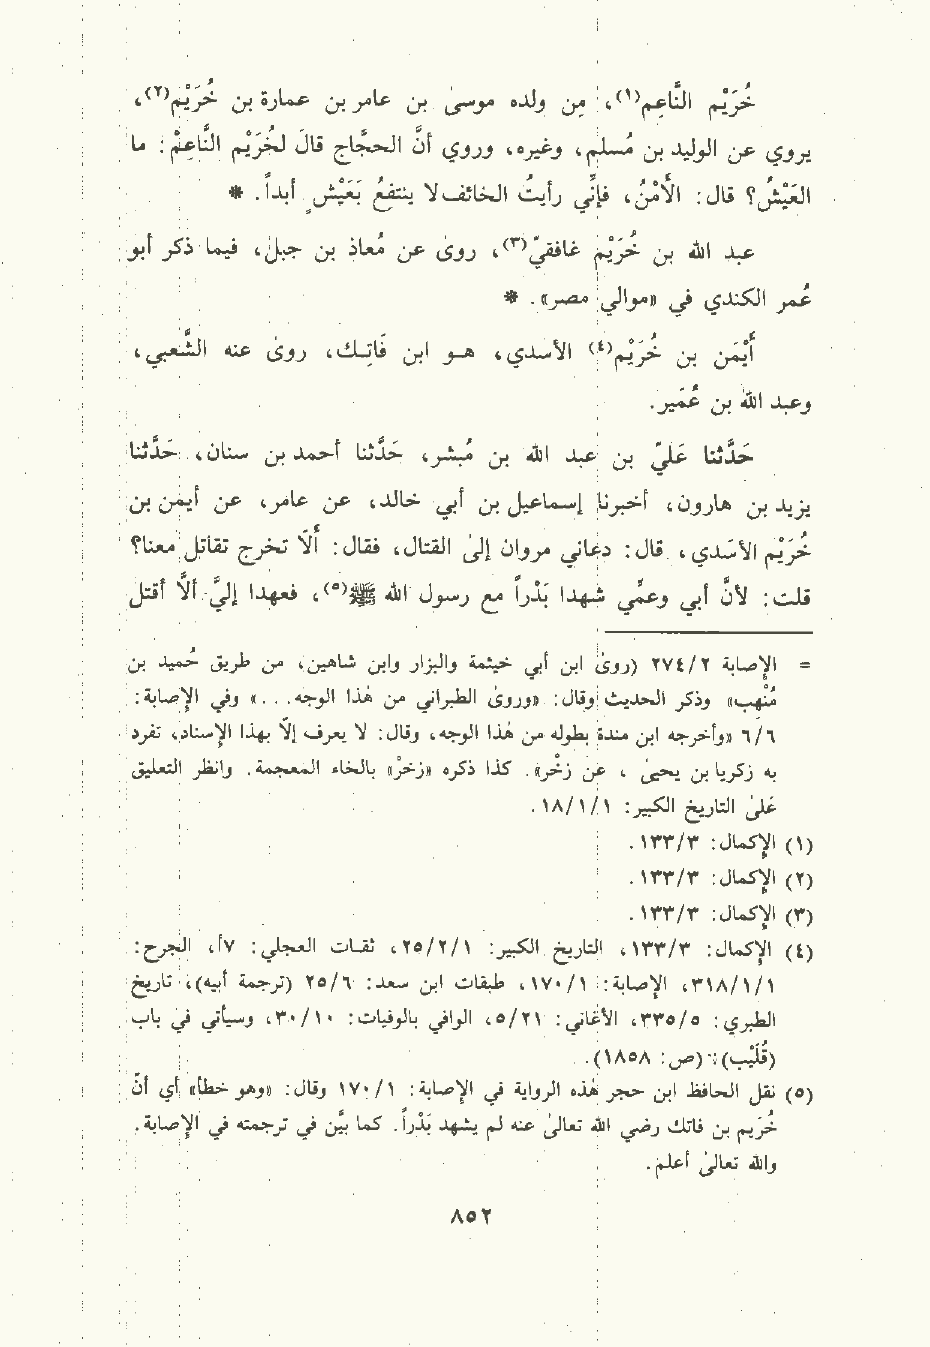 خُرَيْم النَّاعِم(١)، مِن ولده موسىٰ بن عامر بن عمارة بن خُرَيْم(٢)،
يروي عن الوليد بن مُسلم، وغيره، وروي أنَّ الحجَّاج قالَ لخُرَيْم النَّاعِمْ: ما
العَيْشُ؟ قال: الأمْنُ، فإنِّي رأيتُ الخائف لا ينتفِعُ بَعَيْشٍ أبداً. *
عبد الله بن خُرَيْم غافقيّ(٣)، روىٰ عن مُعاذ بن جبلٍ، فيما ذكر أبو
عُمر الكندي في «موالي مصر». *
أَيْمَن بن خُرَيْم(٤) الأسدي، هـو ابن فَاتِـك، روىٰ عنه الشَّعبي،
وعبد الله بن عُمَير.
حَدَّثنا عَليّ بن عبد الله بن مُبشر، حَدَّثنا أحمد بن سنان، حَدَّثنا
يزيد بن هارون، أخبرنا إسماعيل بن أبي خالد، عن عامر، عن أيمن بن
خُرَيْم الأسَدي، قال: دعاني مروان إلىٰ القتال، فقال: ألَا تخرج تقاتل معنا؟
قلت: لأنَّ أبي وعمِّي شهدا بَدْراً مع رسول الله ﷺ(٥)، فعهدا إليَّ ألاَّ أقتل
= الإصابة ٢٧٤/٢ (روىٰ ابن أبي خيثمة والبزار وابن شاهين، من طريق حُميد بن
مُنْهِب» وذكر الحديث وقال: «وروىٰ الطبراني من هٰذا الوجه. . .» وفي الإصابة:
٦/٦ «وأخرجه ابن مندة بطوله من هٰذا الوجه، وقال: لا يعرف إلَّا بهذا الإسناد، تفرد
به زكريا بن يحيىٰ، عن زخْر». كذا ذكره «زخْر» بالخاء المعجمة. وانظر التعليق
عَلىٰ التاريخ الكبير: ١٨/١/١.
(١) الإكمال: ١٣٣/٣.
(٢) الإكمال: ١٣٣/٣.
(٣) الإكمال: ١٣٣/٣.
(٤) الإكمال: ١٣٣/٣، التاريخ الكبير: ٢٥/٢/١، ثقـات العجلي: ٧أ، الجرح:
٣١٨/١/١، الإصابة: ١٧٠/١، طبقات ابن سعد: ٢٥/٦ (ترجمة أبيه)، تاريخ
الطبري: ٣٣٥/٥، الأغاني: ٥/٢١، الوافي بالوفيات: ٣٠/١٠، وسيأتي في باب
(قُلَيْب): (ص: ١٨٥٨).
(٥) نقل الحافظ ابن حجر هذه الرواية في الإصابة: ١٧٠/١ وقال: «وهو خطأ» أي أنَّ
خُرَيم بن فاتك رضي الله تعالىٰ عنه لم يشهد بَدْراً. كما بيَّن في ترجمته في الإصابة.
والله تعالىٰ أعلم.
٨٥٢